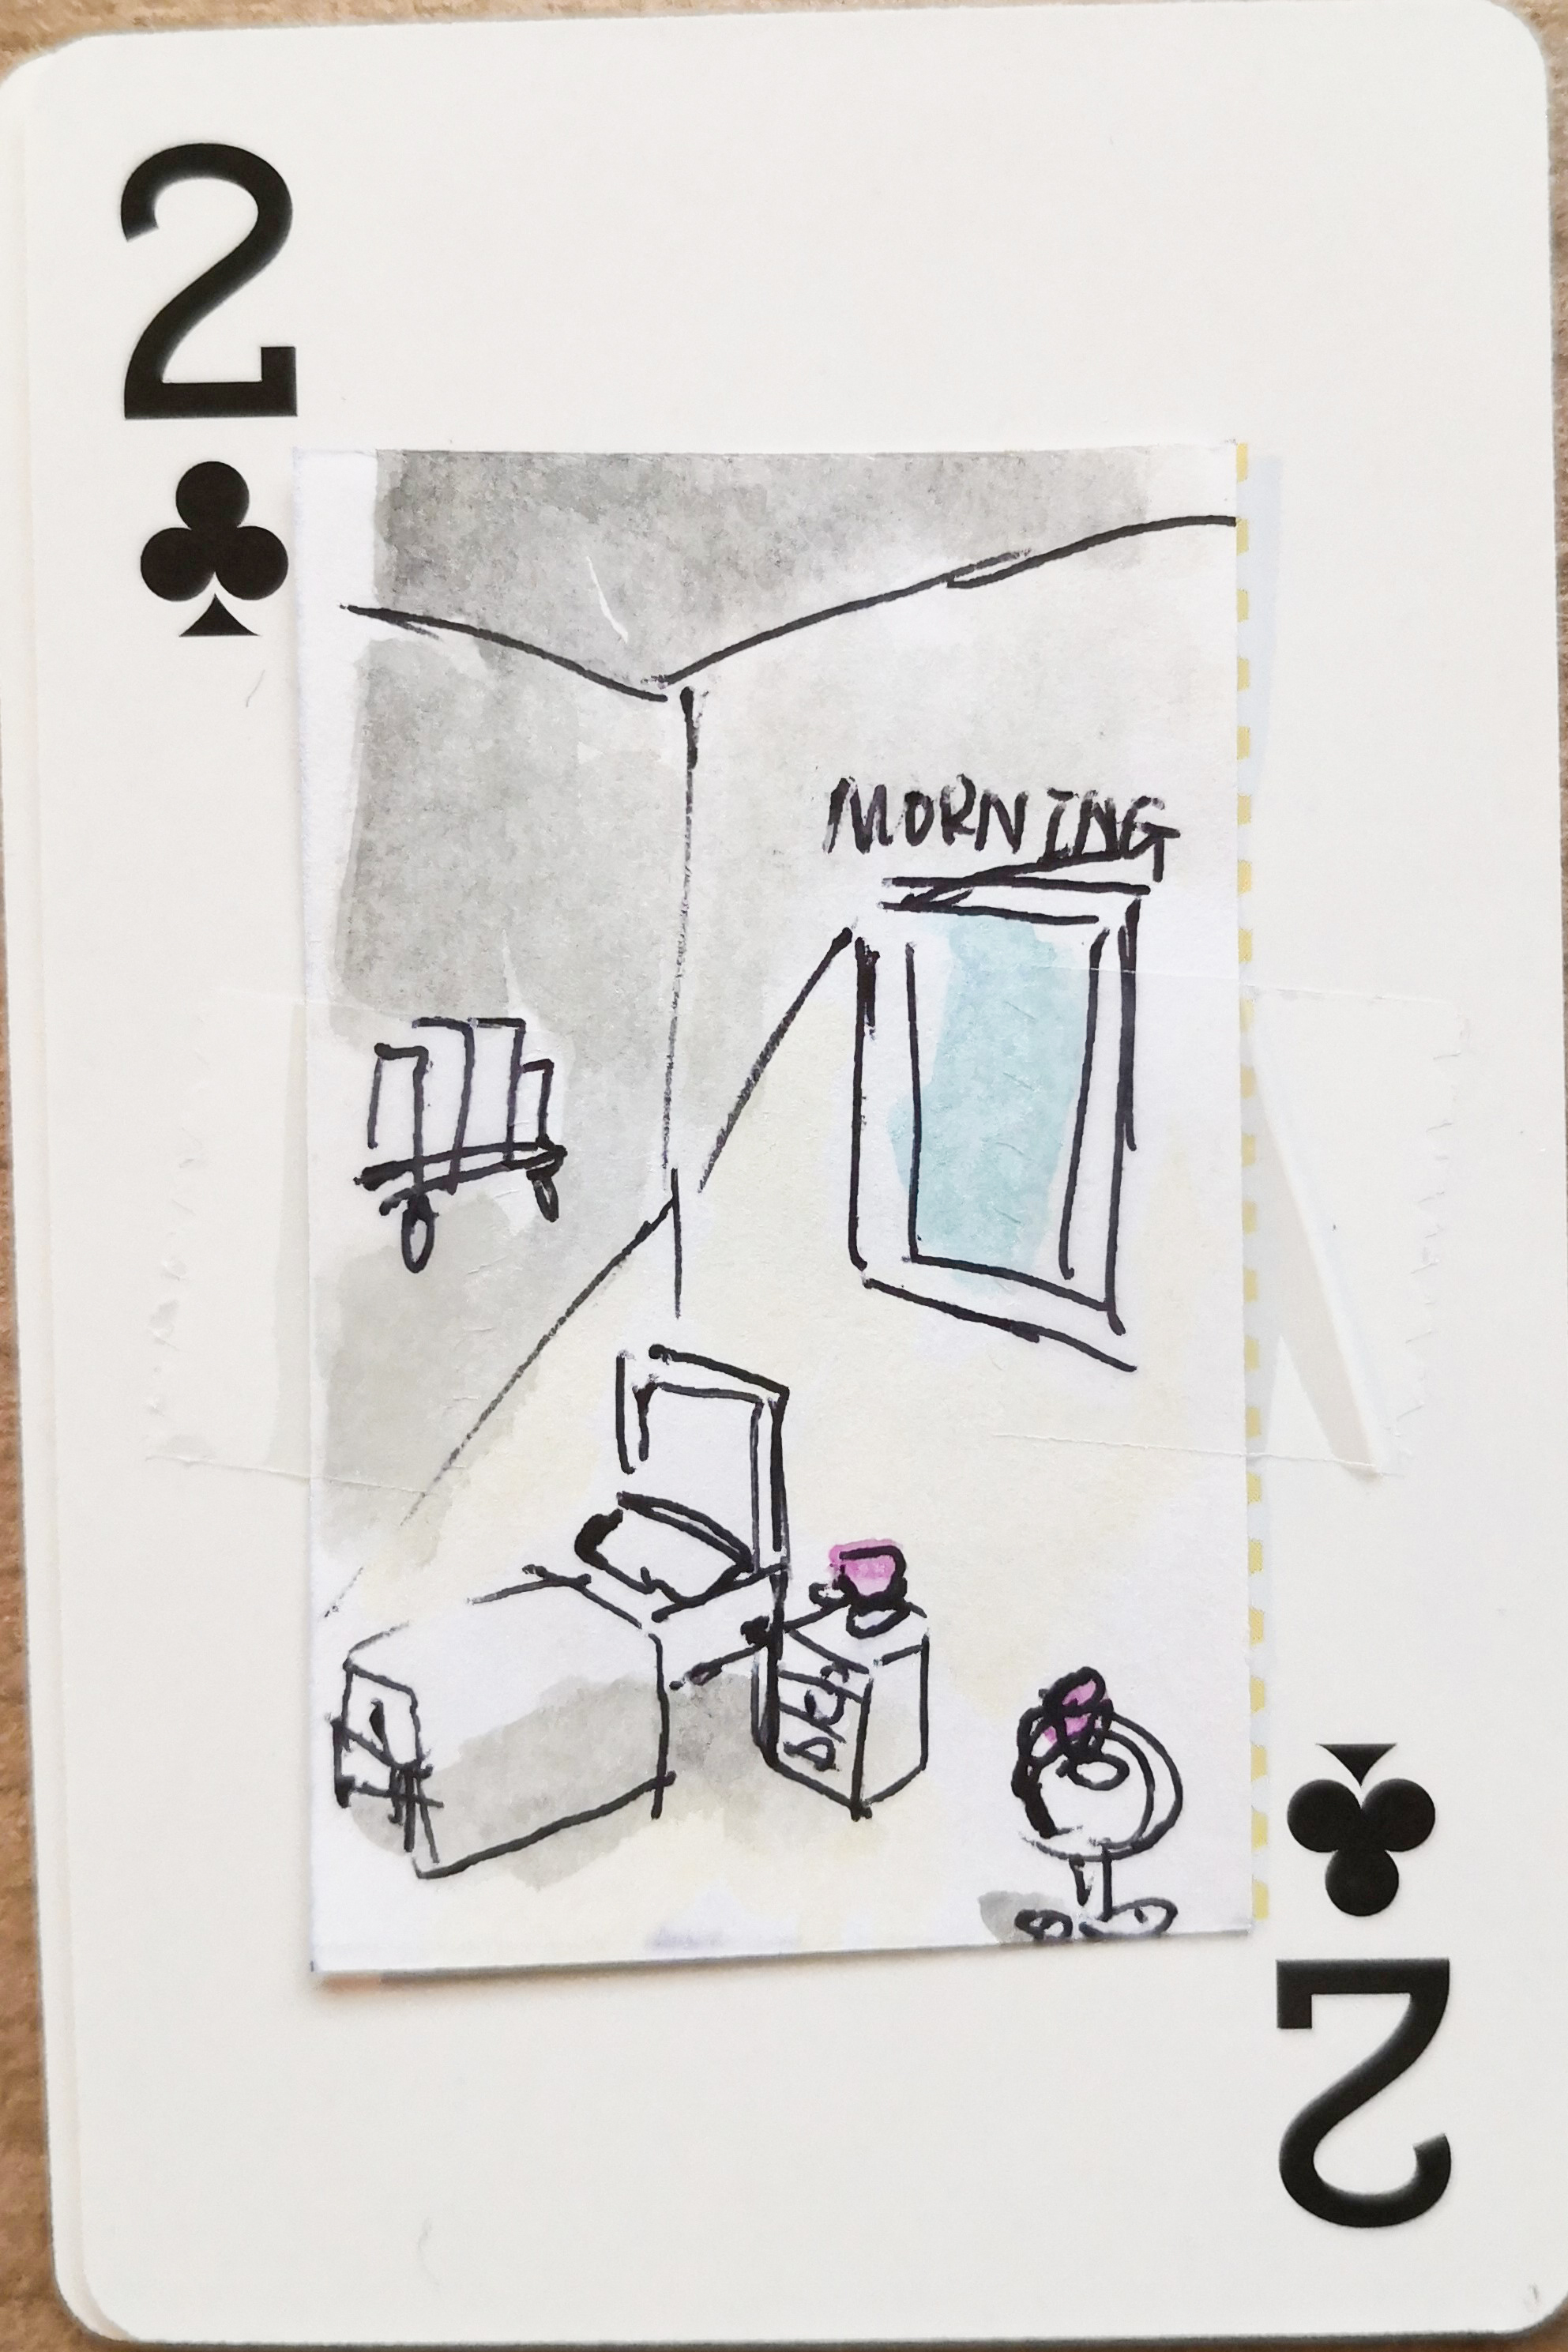 2
MORNING
2